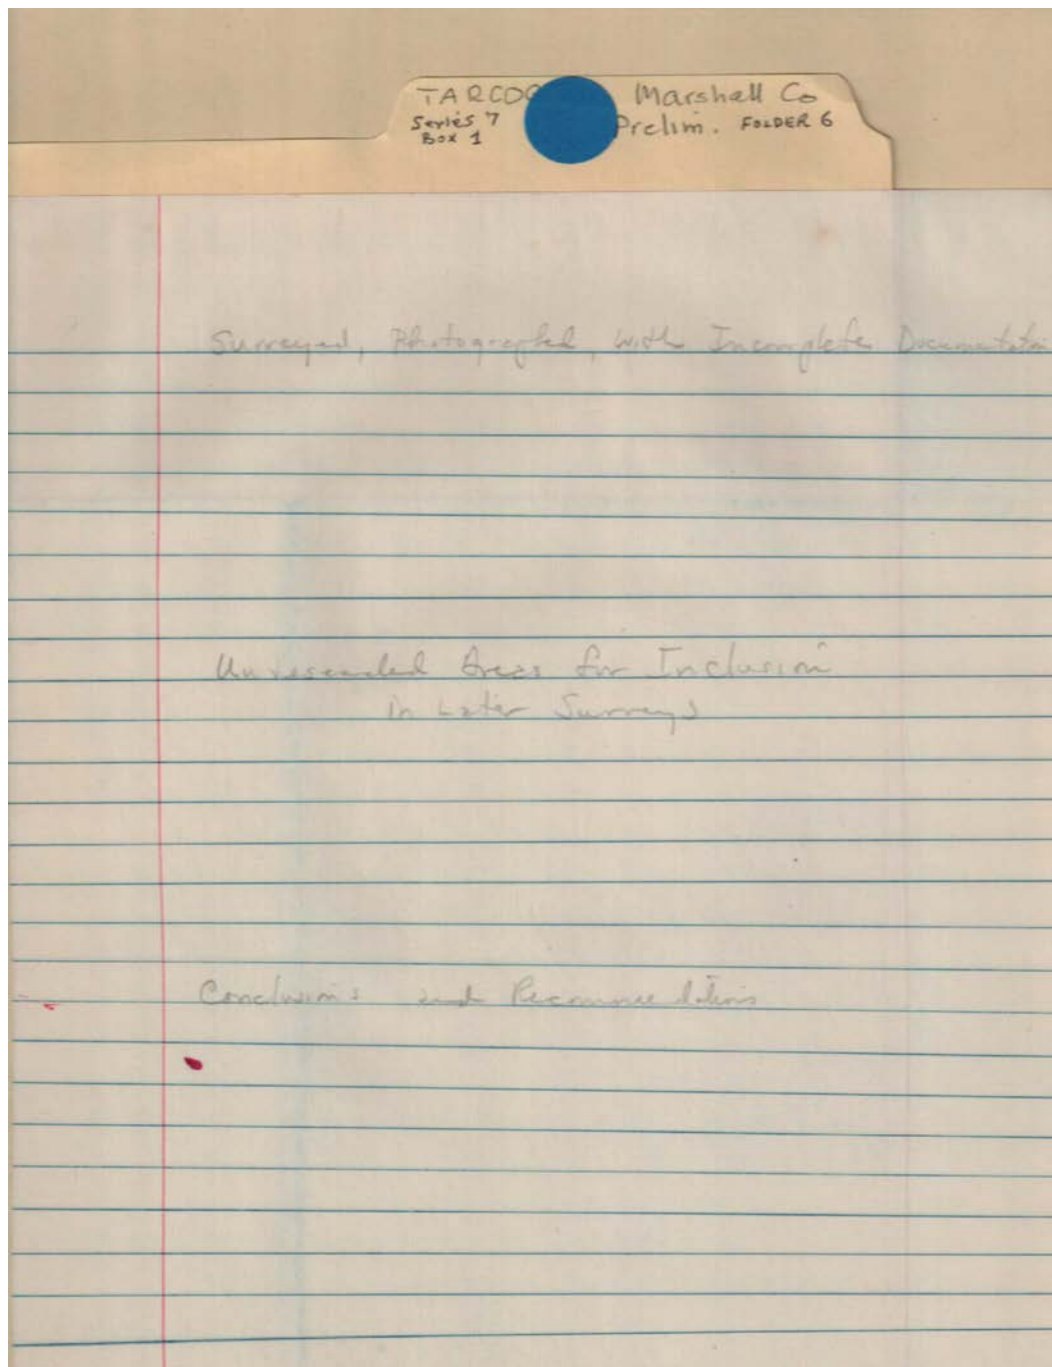 TARCOG Marshall Co
Series 7 Prelim. FOLDER 6
Box 1
Surveyed, Photographed, with Incomplete Documentation
Unresearched Areas for Inclusion
in Later Surveys
Conclusions and Recommendations